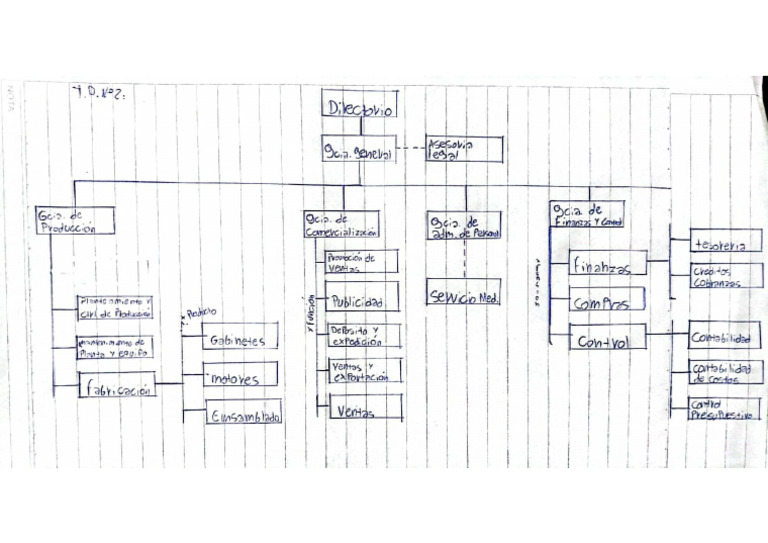 T.P. Nº2:
Directorio
gcia. general
Asesoria
legal
Gcia. de
Producción
gcia. de
Comercialización
gcia. de
adm. de Personal
gcia. de
Finanzas y Control
Planeamiento y
ctrl de Producción
mantenimiento de
Planta y equipo
fabricación
x Producto
Gabinetes
motores
Emsamblado
x función
Promoción de
ventas
Publicidad
Deposito y
expedición
Ventas y
exportación
Ventas
Servicio Med.
finanzas
Compras
Control
tesoreria
Creditos
Cobranzas
Contabilidad
contabilidad
de costos
Control
Presupuestivo
NOTA